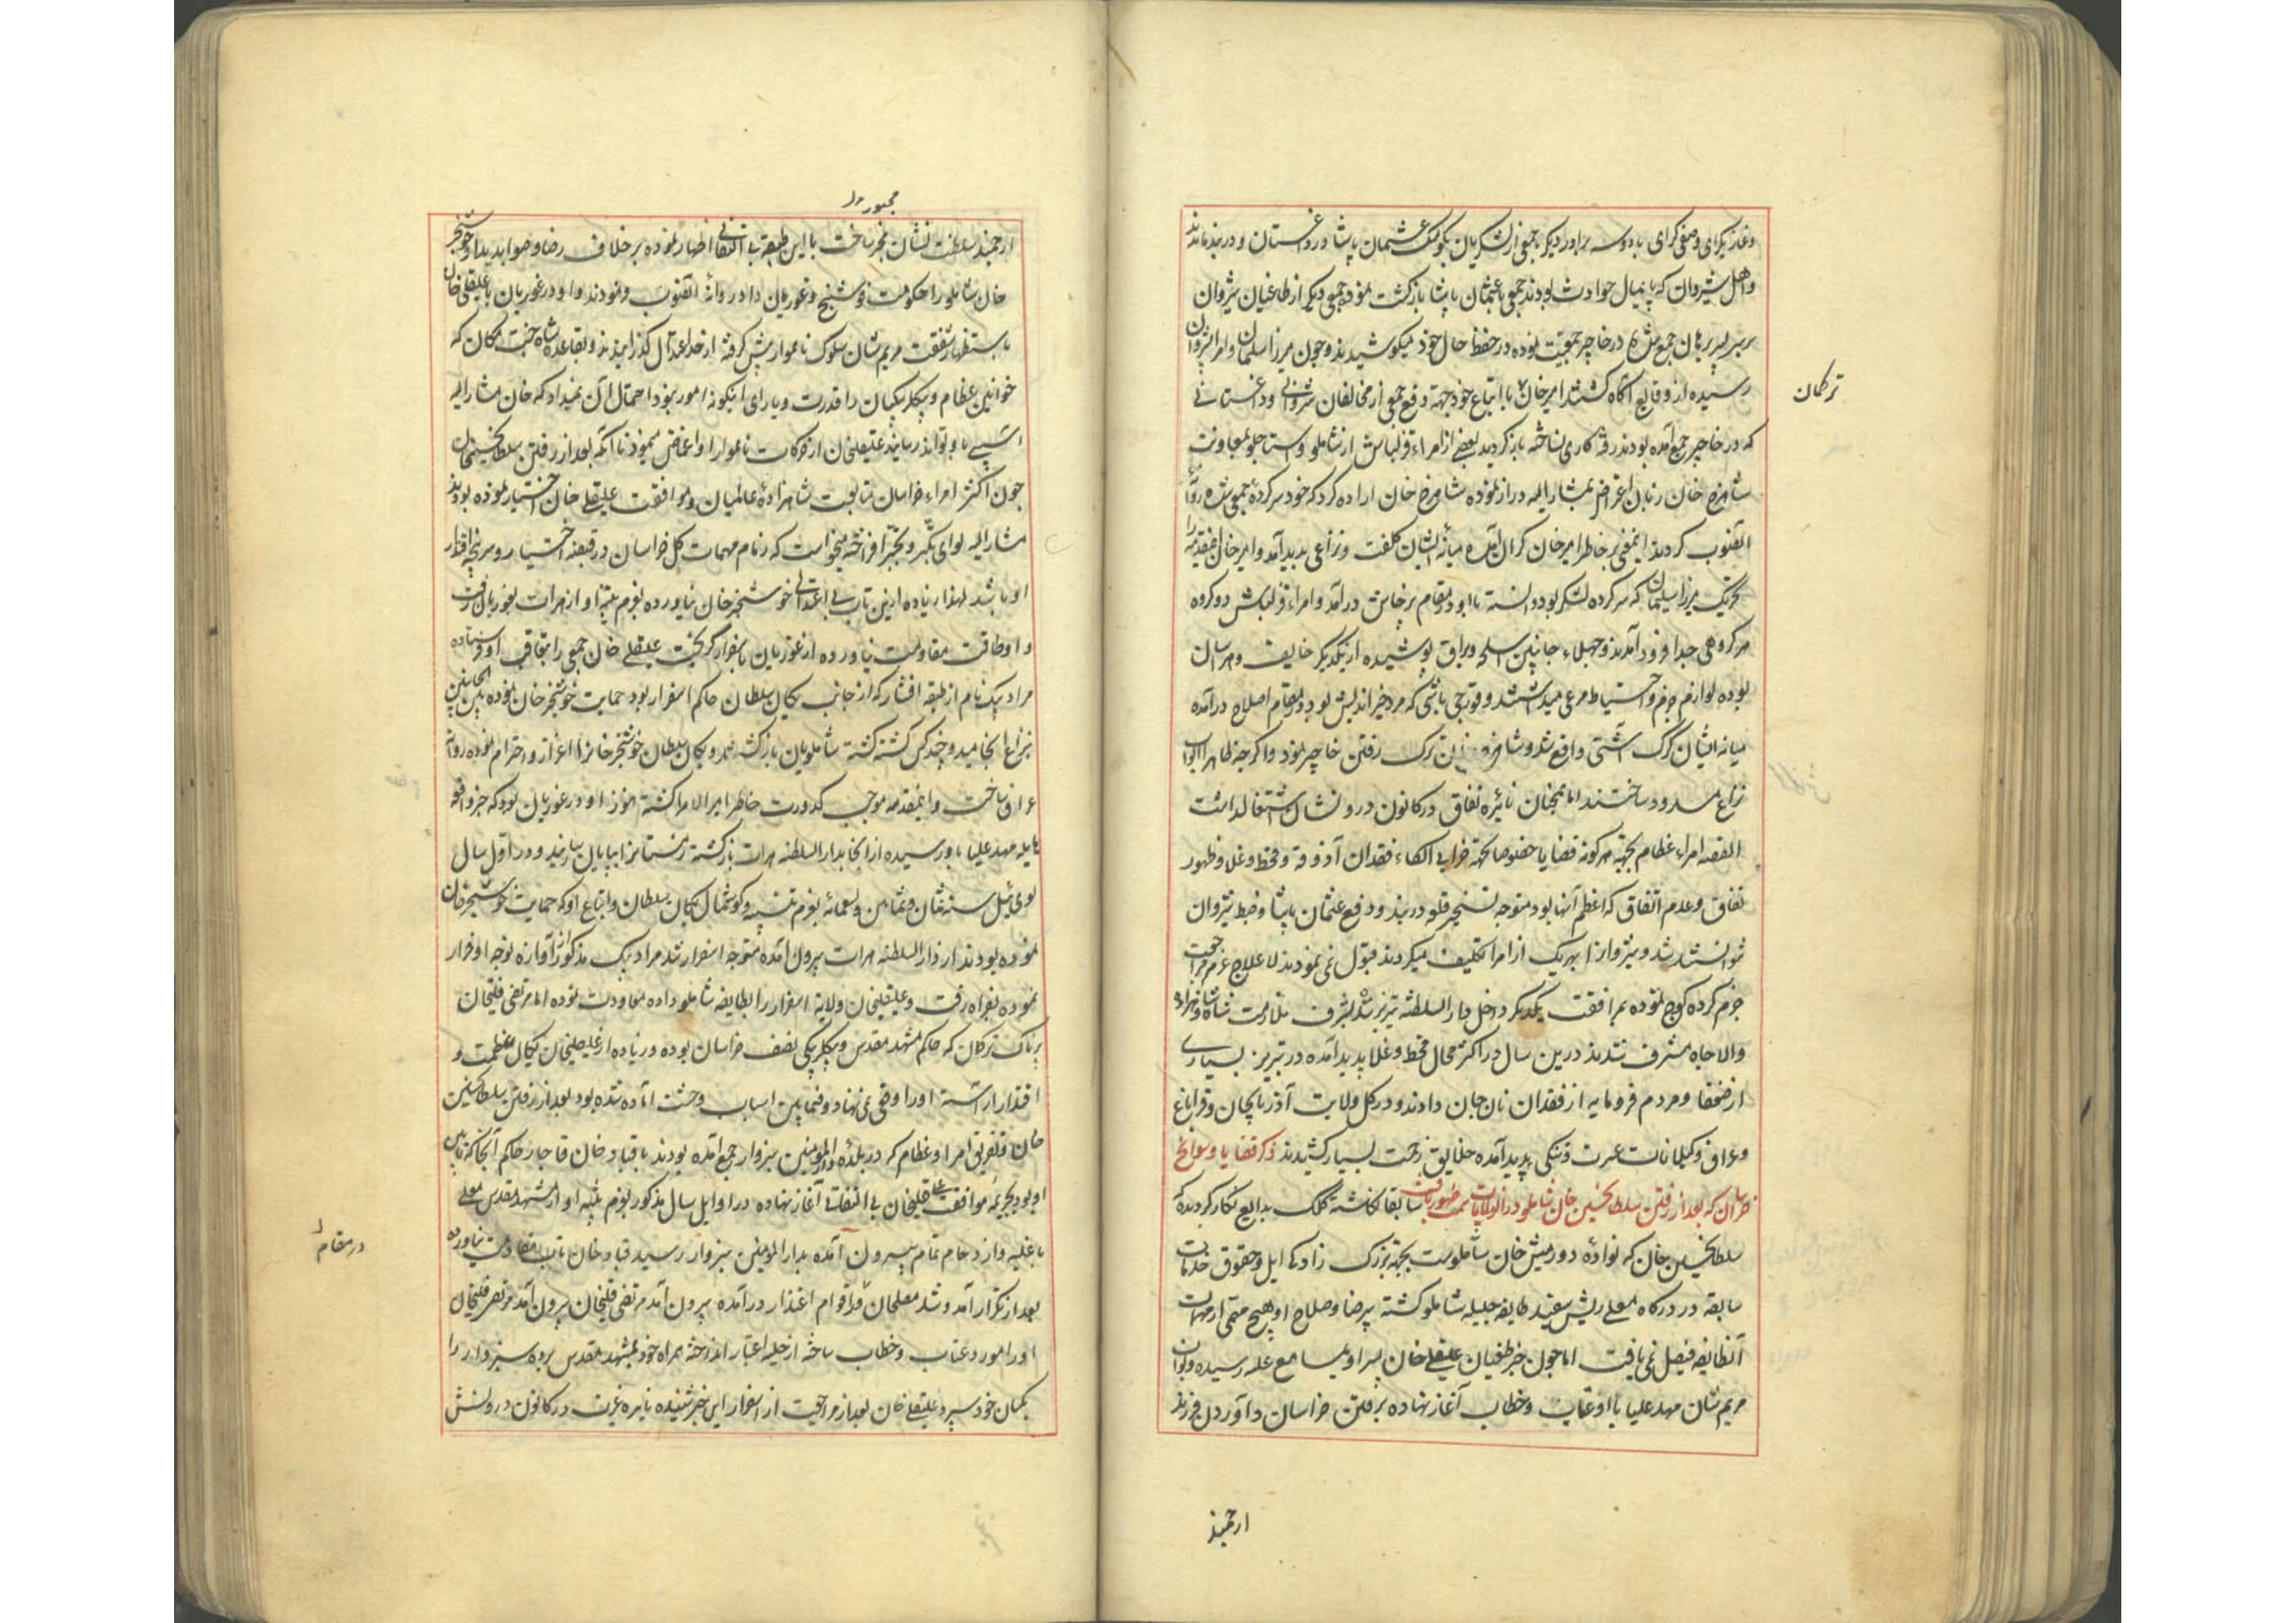 وغازیکرای وصفی کرای با دو سه برادر دیکر با جمعی از لشکریان بکومک عثمان پاشا در داغستان و دربند ماندند
واهل شیروان که پایمال حوادث بودند جمعی با عثمان پاشا بازکشت نموده جمعی دیکر از طاغیان شیروان
بر سر پسر برهان جمع شده در خاچر جمعیت نموده در حفظ حال خود میکوشیدند و چون میرزا سلمان و امرا بشیروان
رسیده از وقایع آکاه کشتند امیر خان با اتباع خود جهة دفع جمعی از مخالفان شیروانی و داغستانی
ترکمان
که در خاچر جمع آمده بودند رفته کاری نساخته باز کردید بعضی از امراء قزلباش از شاملو و استاجلو بمعاونت
شاهرخ خان زبان اعتراض بمشار الیه دراز نموده شاهرخ خان اراده کرد که خود سرکرده جمعی شده روانه
آنصوب کردد اینمعنی بر خاطر امیر خان کران آمده میانه ایشان کلفت و نزاعی پدید آمد و امیر خان اینقدمه را
تحریک میرزا سلمان که سرکرده لشکر بود دانسته با او در مقام پرخاش درآمد و امراء قزلباش دو کروه
هر کروهی جدا فرود آمدند و جهلاء جانبین اسلحه و یراق پوشیده از یکدیکر خایف و هراسان
بوده لوازم حزم و احتیاط مرعی میداشتند و قورچی باشی که مرد خیر اندیش بود در مقام اصلاح درآمده
میانه ایشان کرک آشتی واقع شد و شاهرخ خان ترک رفتن خاچر نمود و اکر چه ظاهرا ابواب
نزاع مسدود ساختند اما همچنان نائره نفاق در کانون درونشان اشتعال داشت
القصه امراء عظام بجهة هر کونه قضایا خصوصا بجهة خرابی الکاء فقدان آذوقه و قحط و غلا و ظهور
نفاق و عدم اتفاق که اعظم آنها بود متوجه تسخیر قلعه دربند و دفع عثمان پاشا و ضبط شیروان
نتوانستند شد و شیروانرا بهر یک از امرا تکلیف میکردند قبول نمی نمودند لا علاج عزم مراجعت
جزم کرده کوچ نموده بمرافقت یکدیکر داخل دار السلطنه تبریز شده بشرف ملازمت شاه و شاهزاده
والا جاه مشرف شدند درین سال در اکثر محال قحط و غلا پدید آمده در تبریز بسیاری
از ضعفا و مردم فرومایه از فقدان نان جان دادند و در کل ولایت آذربایجان و قراباغ
وعراق و کیلانات عسرت و تنکی پدید آمده خلایق زحمت بسیار کشیدند ذکر قضایا و سوانح
خراسان که بعد از رفتن سلطانحسین خان شاملو در آنولایت سمت ظهور یافت سابقا نکاشته کلک بدایع نکار کردیده که
سلطانحسین خان که نواده دورمیش خان شاملوست بجهة بزرک زادکی ایل و حقوق خدمات
سابقه در درکاه معلی ریش سفید طایفه جلیله شاملو کشته بیرضا و صلاح او هیچ مهمی از مهمات
آنطایفه فیصل نمی یافت اما چون خبر طغیان علیقلی خان پسر او بمسامع علیه رسیده و نواب
مریم شان مهد علیا با او عتاب و خطاب آغاز نهاده برفتن خراسان و آوردن فرزند
ارجمند
مجبور
ارجمند سلطنت نشان مجبور ساخت با این طبقه بی التفاتی اظهار نموده بر خلاف رضا و صوابدید او خوشخبر
خان شاملو را حکومت فوشنج و غوریان داد روانه آنصوب نمودند و او در غوریان با علیقلی خان
باستظهار شفقت مریم شان سلوک ناهموار پیش کرفته از حد اعتدال کذرانیدند و بقاعده شاه جنت مکان که
خوانین عظام و بیکلربیکیان را قدرت و یارای اینکونه امور نبود احتمال آن نمیداد که خان مشار الیه
آسیبی باو تواند رسانید علیقلیخان از حرکات ناهموار او اغماض مینمود تا آنکه بعد از رفتن سلطانحسینخان
چون اکثر امراء خراسان متابعت شاهزاده عالمیان و موافقت علیقلی خان اختیار نموده بودند
مشار الیه لوای تکبر و تجبر افراخته میخواست که زمام مهمات کل خراسان در قبضه اختیار و سرپنجه اقتدار
او باشد لهذا زیاده ازین تاب بی اعتدالی خوشخبر خان نیاورده بعزم تنبیه او از هرات بغوریان رفت
و او طاقت مقاومت نیاورده از غوریان باسفزار کریخت علیقلی خان جمعی را بتعاقب او فرستاده
مراد بیک نام از طبقه افشار که از جانب یکان سلطان حاکم اسفزار بود حمایت خوشخبر خان نموده بین الجانبین
بنزاع انجامید و چند کس کشته کشته شاملویان بازکشتند و یکان سلطان خوشخبر خانرا اعزاز و احترام نموده روانه
عراق ساخت و اینمقدمه موجب کدورت خاطر امیر الامرا کشته هنوز او در غوریان بود که خبر واقعه
هایله مهد علیا باو رسیده از آنجا بدار السلطنه هرات بازکشته زمستانرا بپایان رسانید و در اول سال
لوی ئیل سنه ثمان و ثمانین و تسعمائه بعزم تنبیه و کوشمال یکان سلطان و اتباع او که حمایت خوشخبر خان
نموده بودند از دار السلطنه هرات بیرون آمده متوجه اسفزار شد مراد بیک مذکور از آوازه توجه او فرار
نموده بفراه رفت و علیقلیخان ولایة اسفزار را بطایفه شاملو داده معاودت نموده اما مرتضی قلیخان
پرناک ترکمان که حاکم مشهد مقدس و بیکلربیکی نصف خراسان بوده و زیاده از علیقلیخان بکمال عظمت و
اقتدار آراسته او را وقعی نمی نهاد و فیمابین اسباب وحشت آماده شده بود بعد از رفتن سلطانحسین
خان و تفریق امراء عظام که در بلده دار المؤمنین سبزوار جمع آمده بودند با قباد خان قاجار حاکم آنجا که تابین
او بود بجریمه موافقت علیقلیخان بی التفاتی آغاز نهاده در اوایل سال مذکور بعزم تنبیه او از مشهد مقدس معلی
با غلبه و ازدحام تمام بیرون آمده بدار المومنین سبزوار رسید قباد خان تاب مقاومت نیاورده
در مقام
بعد از تکرار آمد و شد مصلحان و اقوام اعتذار درآمده بیرون آمد مرتضی قلیخان بیرون آمد مرتضی قلیخان
او را مورد عتاب و خطاب ساخته از حلیه اعتبار انداخته همراه خود بمشهد مقدس برده سبزوار را
بکسان خود سپرد علیقلی خان بعد از مراجعت از اسفزار این خبر شنیده نایره غیرت در کانون درونش